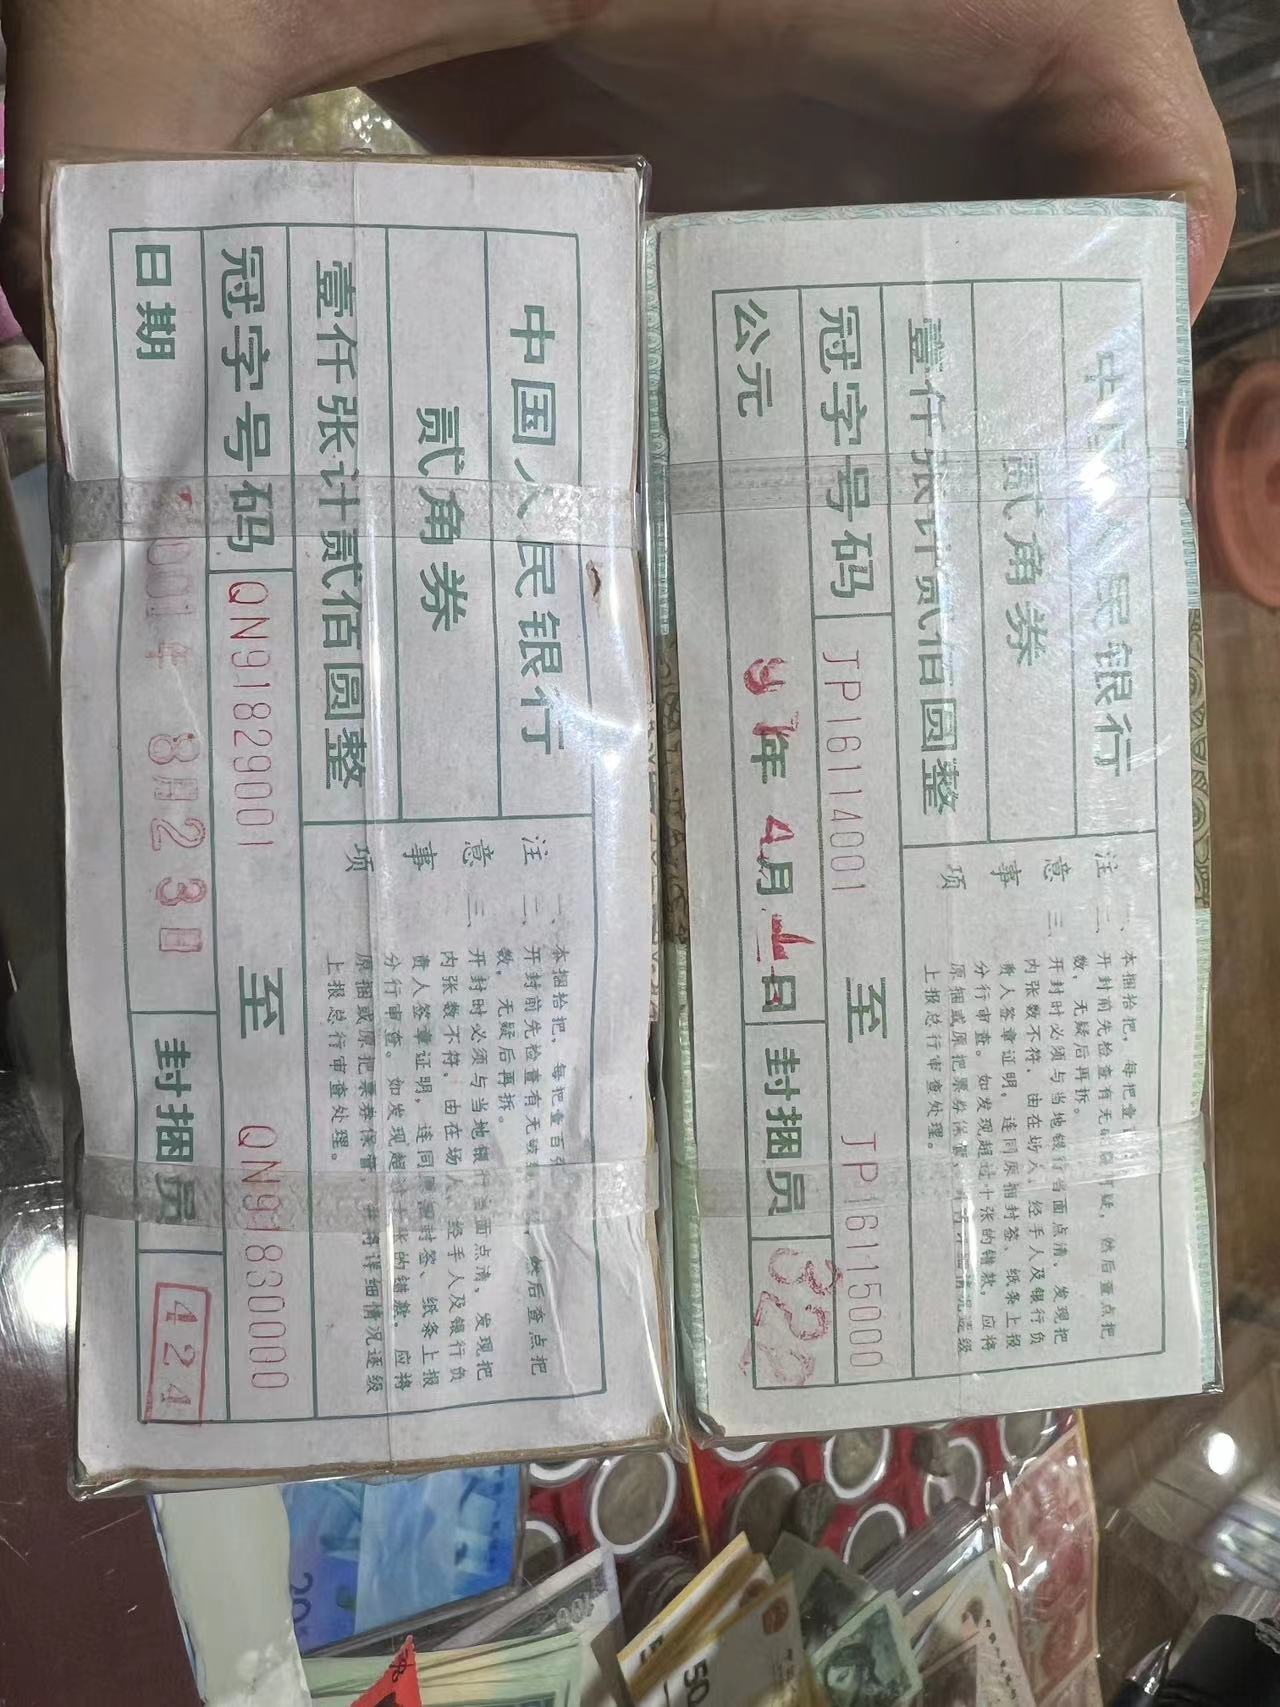 中国人民银行
贰角券
壹仟张计贰佰圆整
冠字号码 QN91829001 至 QN91830000
日期 001年 8月23日 封捆员 424
注意事项
一、本捆拾把，每把壹百张
二、开封前先检查有无破 然后查点把
数，无疑后再拆。
三、开封时必须与当地银行当面点清、发现把
内张数不符，由在场人、经手人及银行负
责人签章证明，连同原捆封签、纸条上报
分行审查。如发现超过十张的错款，应将
原捆或原把票券保管，并将详细情况逐级
上报总行审查处理。
中 民银行
贰角券
壹仟张计贰佰圆整
冠字号码 JP16114001 至 JP16115000
公元 91年 4月 日 封捆员 322
注意事项
一、本捆拾把，每把壹百
二、开封前先检查有无破 可疑，然后查点把
数，无疑后再拆。
三、开封时必须与当地银行当面点清、发现把
内张数不符，由在场人、经手人及银行负
责人签章证明，连同原捆封签、纸条上报
分行审查。如发现超过十张的错款，应将
原捆或原把票券保管，并将详细情况逐级
上报总行审查处理。
20
100
50